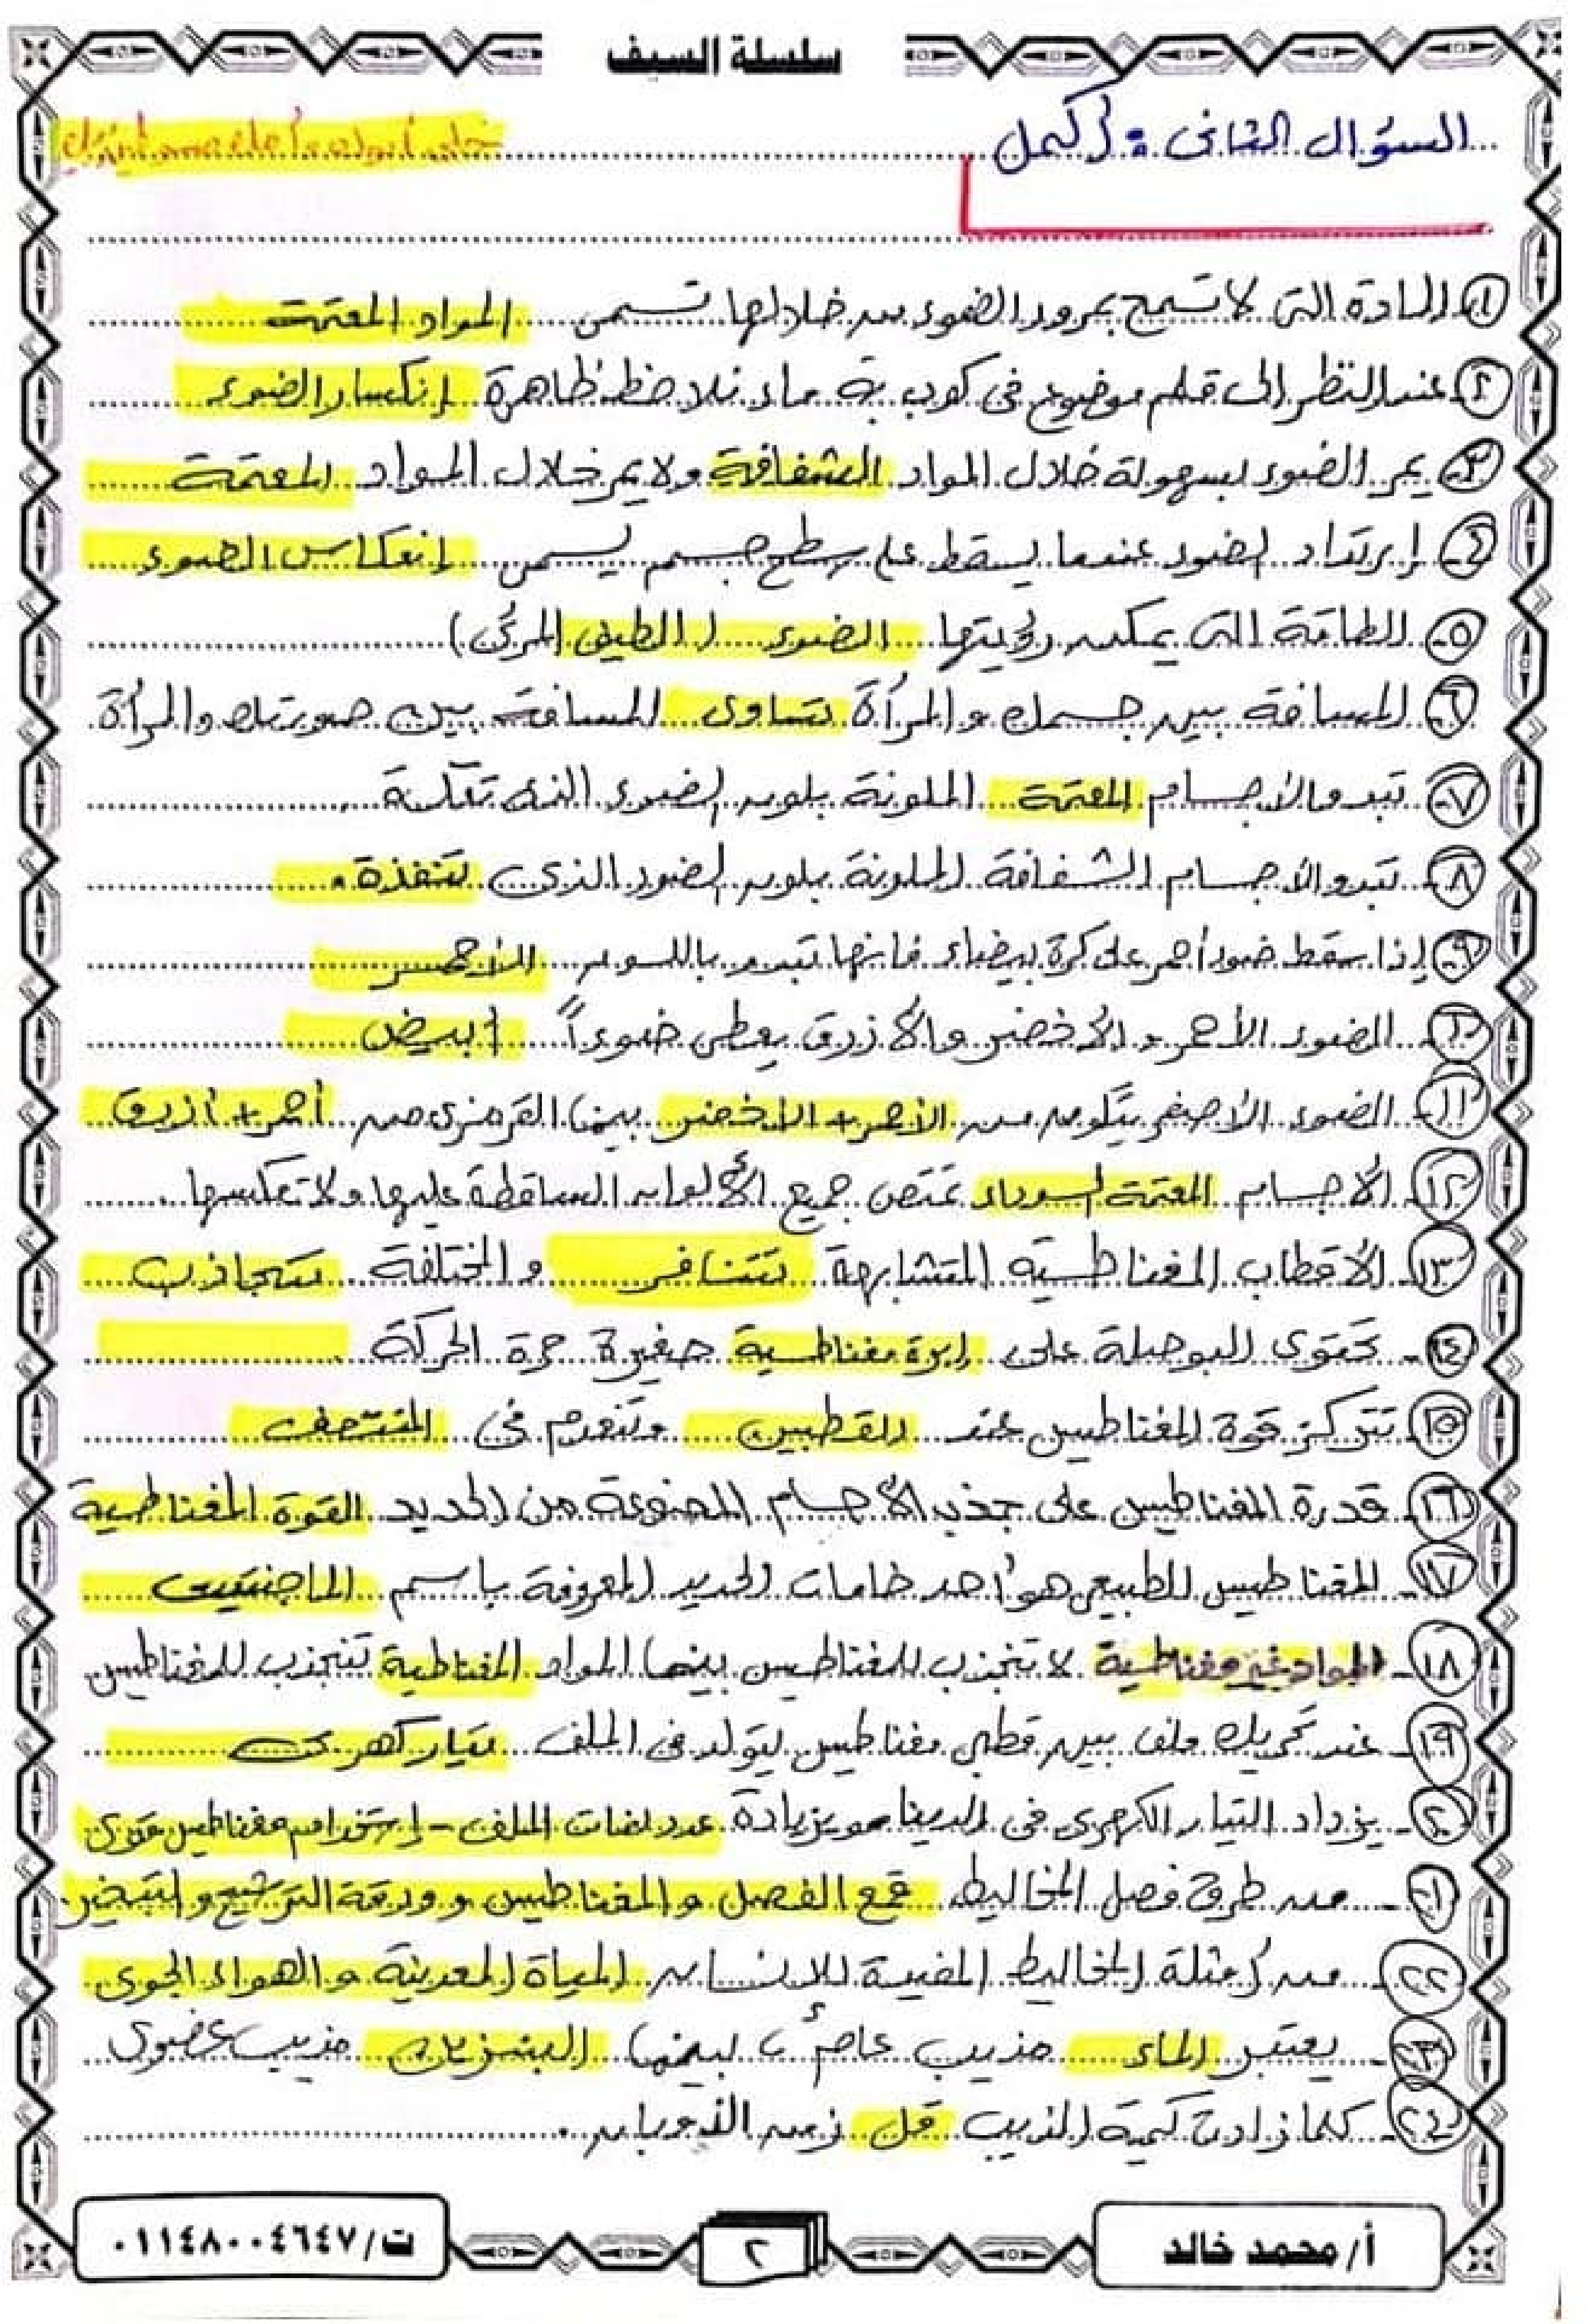 سلسلة السيف
السؤال الثانى : أكمل
١- المادة التى لا تسمح بمرور الضوء من خلالها تسمى المواد المعتمة
٢- عند النظر إلى قلم موضوع فى كوب به ماء نلاحظ ظاهرة إنكسار الضوء
٣- يمر الضوء بسهولة خلال المواد الشفافة ولا يمر خلال المواد المعتمة
٤- إرتداد الضوء عندما يسقط على سطح جسم يسمى إنعكاس الضوء
٥- الطاقة التى يمكن رؤيتها الضوء (الطيف المرئى)
٦- المسافة بين جسمك والمرآة تساوى المسافة بين صورتك والمرآة
٧- تبدو الأجسام المعتمة الملونة بلون الضوء الذى تعكسة
٨- تبدو الأجسام الشفافة الملونة بلون الضوء الذى تنفذة .
٩- إذا سقط ضوء أحمر على كرة بيضاء فإنها تبدو باللون الأحمر
١٠- الضوء الأحمر و الأخضر والأزرق يعطى ضوءاً أبيض
١١- الضوء الأصفر يتكون من الأحمر + الأخضر بينما القرمزى من أحمر + أزرق
١٢- الأجسام المعتمة السوداء تمتص جميع الألوان الساقطة عليها ولا تعكسها .
١٣- الأقطاب المغناطسية المتشابهة تتنافر و المختلفة تتجاذب
١٤- تحتوى البوصلة على إبرة مغناطسية صغيرة حرة الحركة
١٥- تتركز قوة المغناطيس عند القطبين وتنعدم فى المنتصف
١٦- قدرة المغناطيس على جذب الأجسام المصنوعة من الحديد القوة المغناطسية
١٧- المغناطيس الطبيعى هو أحد خامات الحديد المعروفة باسم الماجنتيت
١٨- المواد غير مغناطسية لا تنجذب للمغناطيس بينما المواد المغناطسية تنجذب للمغناطيس
١٩- عند تحريك ملف بين قطبى مغناطيس يتولد فى الملف تيار كهربى
٢٠- يزداد التيار الكهربى فى الدينامو بزيادة عدد لفات الملف - إستخدام مغناطيس قوى
٢١- من طرق فصل المخاليط قمع الفصل و المغناطيس و ورقة الترشيح و التبخير
٢٢- من أمثلة المخاليط المفيدة للإنسان المياة المعدنية و الهواء الجوى
٢٣- يعتبر الماء مذيب عام ، بينما البنزين مذيب عضوى
٢٤- كلما زادت كمية المذيب قل زمن الذوبان .
أ/ محمد خالد
٢
ت/ ٠١١٤٨٠٠٤٦٤٧